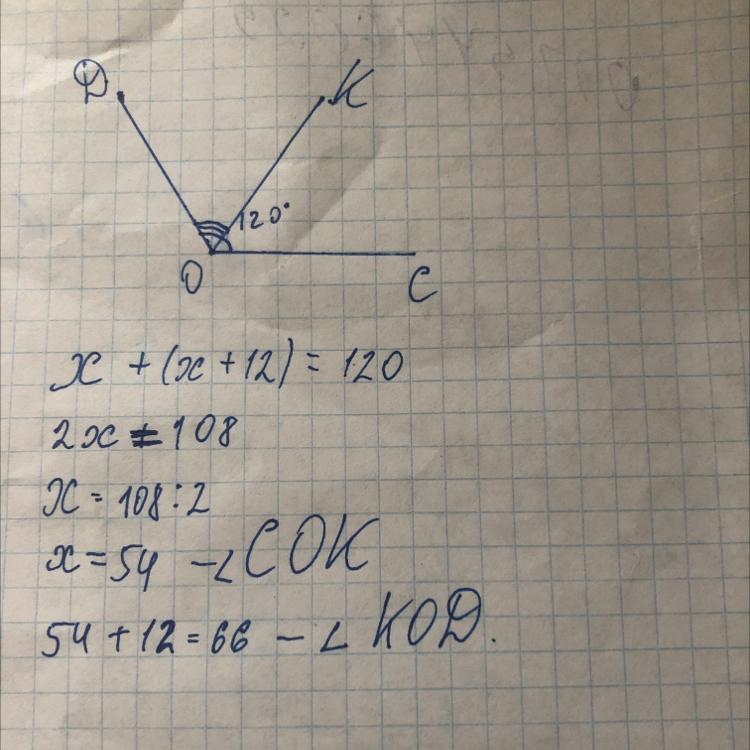 D K
120°
O C
x + (x + 12) = 120
2x = 108
x = 108 : 2
x = 54 - ∠COK
54 + 12 = 66 - ∠KOD.